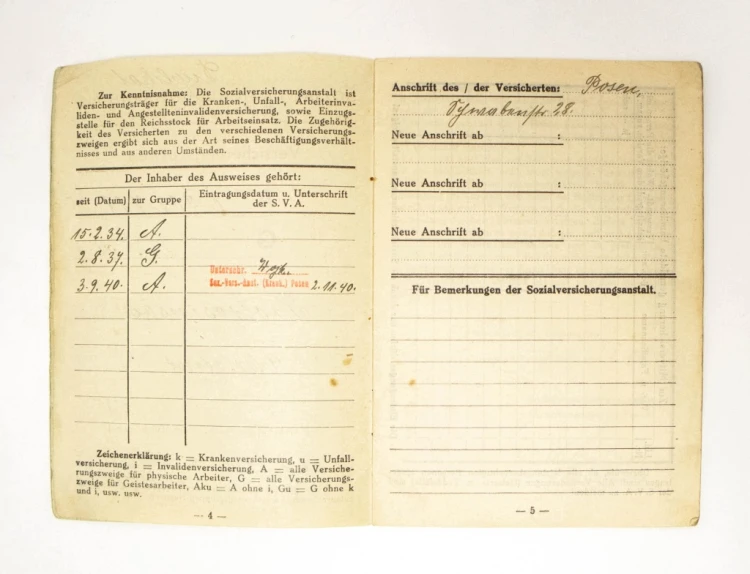 Zur Kenntnisnahme: Die Sozialversicherungsanstalt ist
Versicherungsträger für die Kranken-, Unfall-, Arbeiterinva-
liden- und Angestellteninvalidenversicherung, sowie Einzugs-
stelle für den Reichsstock für Arbeitseinsatz. Die Zugehörig-
keit des Versicherten zu den verschiedenen Versicherungs-
zweigen ergibt sich aus der Art seines Beschäftigungsverhält-
nisses und aus anderen Umständen.
Der Inhaber des Ausweises gehört:
seit (Datum) zur Gruppe Eintragungsdatum u. Unterschrift
der S. V. A.
15.2.34. A.
2.8.37. G.
3.9.40. A.
Unterschr.
Soz.-Vers.-Anst. (Krank.) Posen 2.11.40.
Zeichenerklärung: k = Krankenversicherung, u = Unfall-
versicherung, i = Invalidenversicherung, A = alle Versiche-
rungszweige für physische Arbeiter, G = alle Versicherungs-
zweige für Geistesarbeiter, Aku = A ohne i, Gu = G ohne k
und i, usw. usw.
— 4 —
Anschrift des / der Versicherten: Posen,
Schwabenstr. 28.
Neue Anschrift ab :
Neue Anschrift ab :
Neue Anschrift ab :
Für Bemerkungen der Sozialversicherungsanstalt.
— 5 —